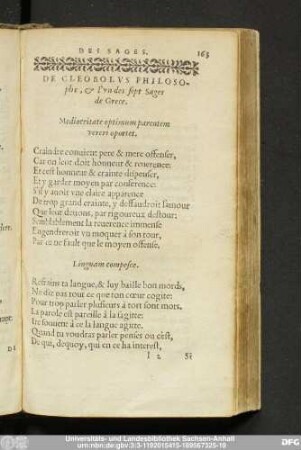 DES SAGES. 163
DE CLEOBOLVS PHILOSO-
phe, & l'vn des sept Sages
de Grece.
Mediocritate optimum parentem
vereri oportet.
Craindre conuient pere & mere offenser,
Car on leur doit honneur & reuerence:
Et c'est honneur & crainte dispenser,
Et y garder moyen par conference:
S'il y auoit vne claire apparence
De trop grand crainte, y deffaudroit l'amour
Que leur deuons, par rigoureux destour:
Semblablement la reuerence immense
Engendreroit vn moquer à son tour,
Par ce ne fault que le moyen offense.
Linguam compesce.
Refrains ta langue, & luy baille bon mords,
Ne dis pas tout ce que ton cœur cogite:
Pour trop parler plusieurs à tort sont morts.
La parole est pareille à la sagitte:
souuent à ce la langue agitte.
Quand tu voudras parler penses ou c'est,
De qui, dequoy, qui en ce ha interest,
I 2 Si
Universitäts- und Landesbibliothek Sachsen-Anhalt
urn:nbn:de:gbv:3:3-1192015415-189567325-18
DFG